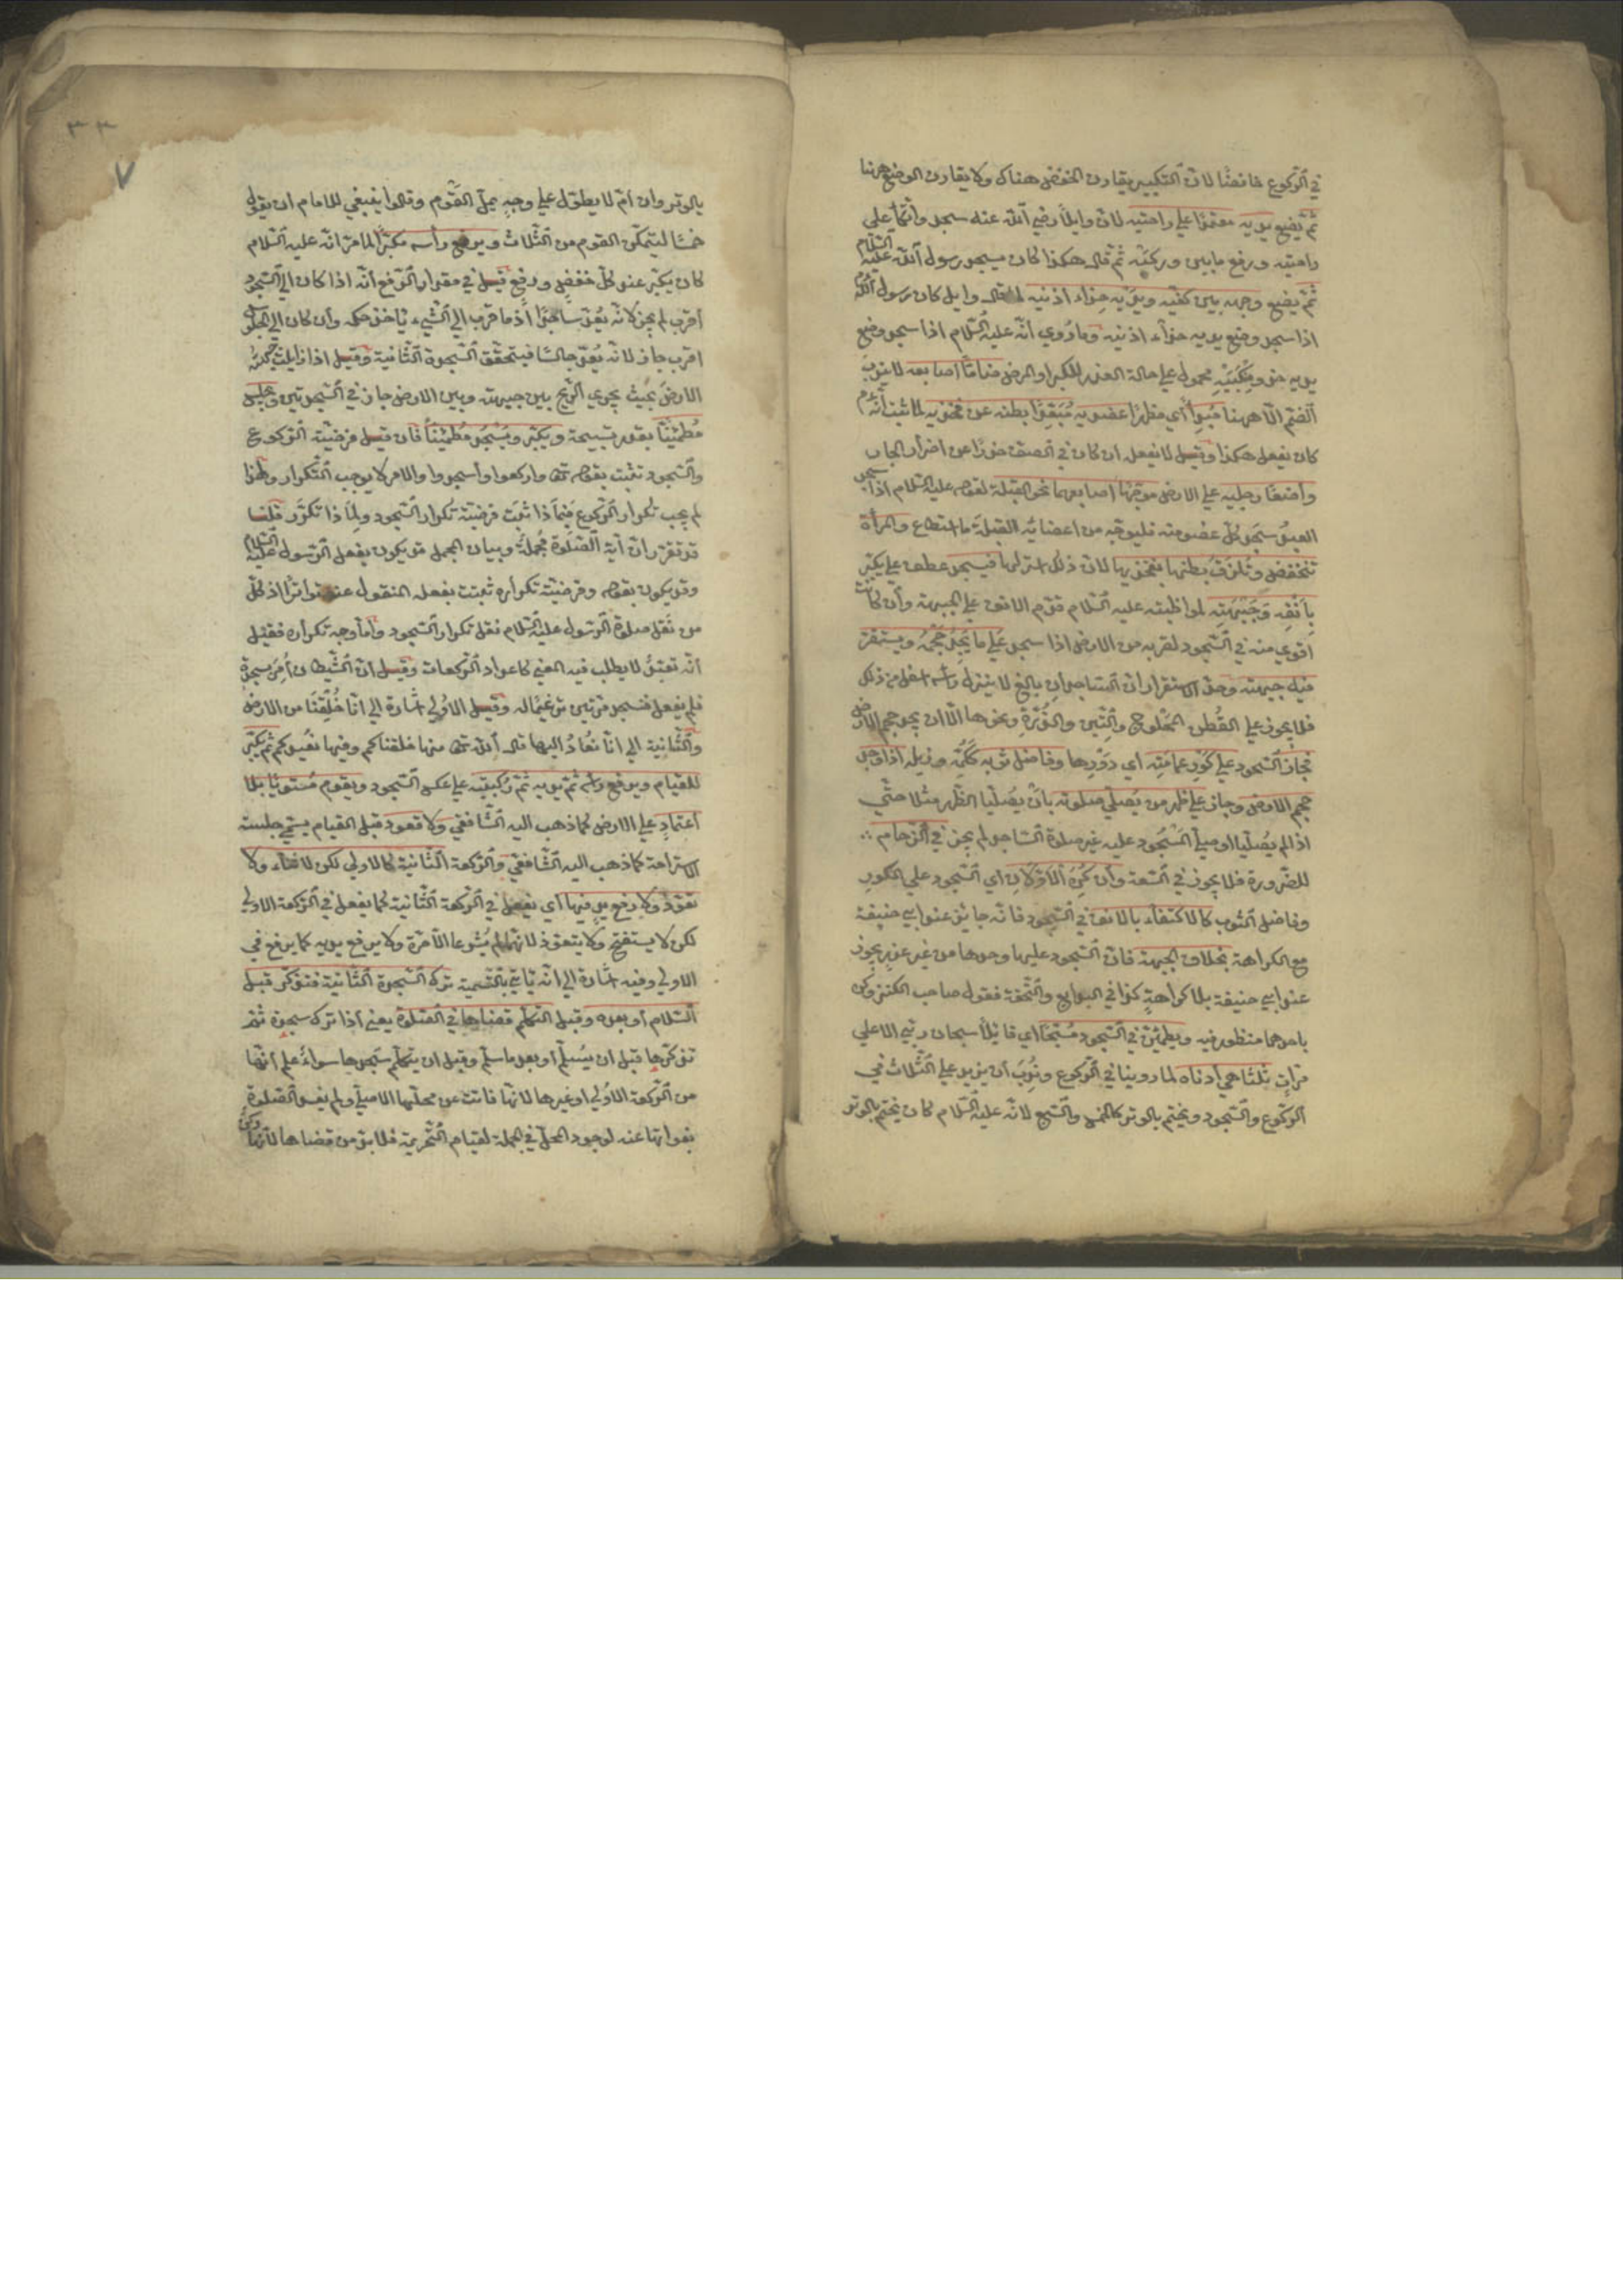 في الركوع خافضا لان التكبير يقارن الخفض هناك ولا يقارن الوضع ههنا
ثم يضع يديه معتمدا على راحتيه لان وايلا رضي الله عنه سجد واتكأ على
راحتيه ورفع ثم قال هكذا كان يسجد رسول الله عليه السلام
ثم يضع وجهه بين كفيه ويديه حذاء اذنيه لما قال وايل كان رسول الله
اذا سجد وضع يديه حذاء اذنيه وما روي انه عليه السلام اذا سجد وضع
يديه حذو منكبيه محمول على حالة العذر للكبر او المرض ضاما اصابعه لا يندب
الضم الا ههنا مبديا اي مظهرا عضديه مبعدا بطنه عن فخذيه لما ثبت انه
كان يفعل هكذا وقيل لا يفعل ان كان في الصف حذرا عن اضرار الجار
واضعا رجليه على الارض موجها اصابعهما نحو القبلة لقوله عليه السلام اذا سجد
العبد سجد كل عضو منه فليوجه من اعضائه القبلة ما استطاع والمرأة
تنخفض وتلزق بطنها بفخذيها لان ذلك استر لها فيسجد عطف على يكبر
بانفه وجبهته لمواظبته عليه السلام قدم الانف على الجبهة وان كانت
اقوى منه في السجود لقربه من الارض اذا سجد على ما يجد حجمه ويستقر
فيه جبهته وحد الاستقرار ان الساجد ان بالغ لا ينزل رأسه اسفل من ذلك
فلا يجوز على القطن المحلوج والتبن والذرة ونحوها الا ان يجد حجم الارض
فجاز السجود على كور عمامته اي دورها وفاضل ثوبه ككمه وذيله اذا وجد
حجم الارض وجاز على ظهر من يصلي صلوته بان يصليا الظهر مثلا حتى
اذا لم يصليا او صلى المسجود عليه غير صلوة الساجد لم يجز في الزحام
للضرورة فلا يجوز في السعة وان كره الاولان اي السجود على الكور
وفاضل الثوب كالاكتفاء بالانف في السجود فانه جايز عند ابي حنيفة
مع الكراهة بخلاف الجبهة فان السجود عليها وحدها من غير عذر يجوز
عند ابي حنيفة بلا كراهة كذا في البدايع والتحفة فقول صاحب الكنز وكره
باحدهما منظور فيه ويطمئن في السجود مسبحا اي قايلا سبحان ربي الاعلى
مرات ثلثا هي ادناه لما روينا في الركوع وندب ان يزيد على الثلاث في
الركوع والسجود ويختم بالوتر كالخمس والسبع لانه عليه السلام كان يختم بالوتر
بالوتر وان ام لا يطول على وجه يمل القوم وقالوا ينبغي للامام ان يقول
خمسا ليتمكن القوم من الثلاث ويرفع رأسه مكبرا لما مر انه عليه السلام
كان يكبر عند كل خفض ورفع قيل في مقدار الرفع انه اذا كان الى السجود
اقرب لم يجز لانه يعد ساجدا اذ ما قرب الى الشيء ياخذ حكمه وان كان الى الجلوس
اقرب جاز لانه يعد جالسا فيتحقق السجدة الثانية وقيل اذا زايلت جبهته
الارض بحيث يجري الريح بين جبهته وبين الارض جاز في السجدتين ويجلس
مطمئنا بقدر تسبيحة ويكبر ويسجد مطمئنا فان قيل فرضية الركوع
والسجود تثبت بقوله تعالى واركعوا واسجدوا والامر لا يوجب التكرار ولهذا
لم يجب تكرار الركوع فبماذا ثبت فرضية تكرار السجود ولماذا تكرر قلنا
قد تقرر ان آية الصلوة مجملة وبيان المجمل قد يكون بفعل الرسول عليه السلام
وقد يكون بقوله وفرضية تكراره ثبتت بفعله المنقول عنه تواترا اذ كل
من نقل صلوة الرسول عليه السلام نقل تكرار السجود واما وجه تكراره فقيل
انه تعبد لا يطلب فيه المعنى كاعداد الركعات وقيل ان الشيطان أمر بسجدة
فلم يفعل فنسجد مرتين ترغيما له وقيل الاولى اشارة الى انا خلقنا من الارض
والثانية الى انا نعاد اليها قال الله تعالى منها خلقناكم وفيها نعيدكم ثم يكبر
للقيام ويرفع رأسه ثم يديه ثم ركبتيه على عكس السجود ويقوم مستويا بلا
اعتماد على الارض كما ذهب اليه الشافعي ولا قعود قبل القيام يسمى جلسة
الاستراحة كما ذهب اليه الشافعي والركعة الثانية كالاولى لكن لا ثناء ولا
تعوذ ولا رفع يد فيها اي يفعل في الركعة الثانية كما يفعل في الركعة الاولى
لكن لا يستفتح ولا يتعوذ لانهما لم يشرعا الا مرة ولا يرفع يديه كما يرفع في
الاولى وفيه اشارة الى انه ياتي بالتسمية ترك السجدة الثانية فتذكر قبل
السلام او بعده وقبل التكلم قضاها في الصلوة يعني اذا ترك سجدة ثم
تذكرها قبل ان يسلم او بعد ما سلم وقبل ان يتكلم سجدها سواء علم انها
من الركعة الاولى او غيرها لانها فاتت عن محلها الاصلي ولم يفسد الصلوة
بفواتها عنه لوجود المحل في الجملة لقيام التحريمة فلا بد من قضاها لانها ركن